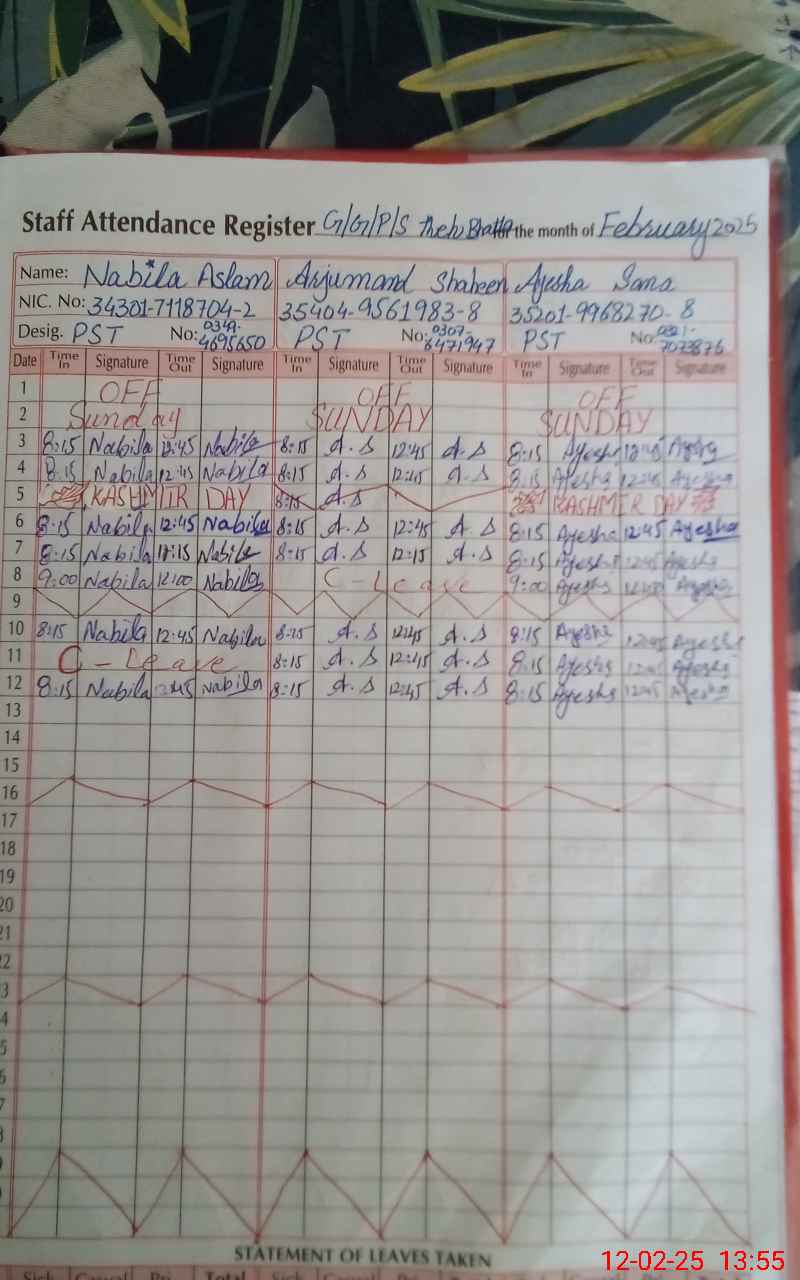 Staff Attendance Register G/G/P/S for the month of February 2025
Name: Nabila Aslam Arjumand Shaheen Ayesha Sana
NIC. No: 34301-7118704-2 35404-9561983-8 35201-9968270-8
Desig. PST No: 0349-4695650 PST No: 0307-6471947 PST No: 0321-7073876
Date Time In Signature Time Out Signature Time In Signature Time Out Signature Time In Signature Time Out Signature
1 OFF OFF OFF
2 Sunday SUNDAY SUNDAY
3 8:15 Nabila 12:45 Nabila 8:15 A.S 12:45 A.S 8:15 Ayesha 12:45 Ayesha
4 8:15 Nabila 12:45 Nabila 8:15 A.S 12:45 A.S 8:15 Ayesha 12:45 Ayesha
5 KASHMIR DAY 8:15 A.S KASHMIR DAY
6 8:15 Nabila 12:45 Nabila 8:15 A.S 12:45 A.S 8:15 Ayesha 12:45 Ayesha
7 8:15 Nabila 12:15 Nabila 8:15 A.S 12:15 A.S 8:15 Ayesha 12:45 Ayesha
8 9:00 Nabila 12:00 Nabila C-Leave 9:00 Ayesha 12:00 Ayesha
9
10 8:15 Nabila 12:45 Nabila 8:15 A.S 12:45 A.S 8:15 Ayesha 12:45 Ayesha
11 C-Leave 8:15 A.S 12:45 A.S 8:15 Ayesha 12:45 Ayesha
12 8:15 Nabila 12:45 Nabila 8:15 A.S 12:45 A.S 8:15 Ayesha 12:45 Ayesha
13
14
15
16
17
18
19
20
21
22
3
4
5
6
7
8
STATEMENT OF LEAVES TAKEN
12-02-25 13:55